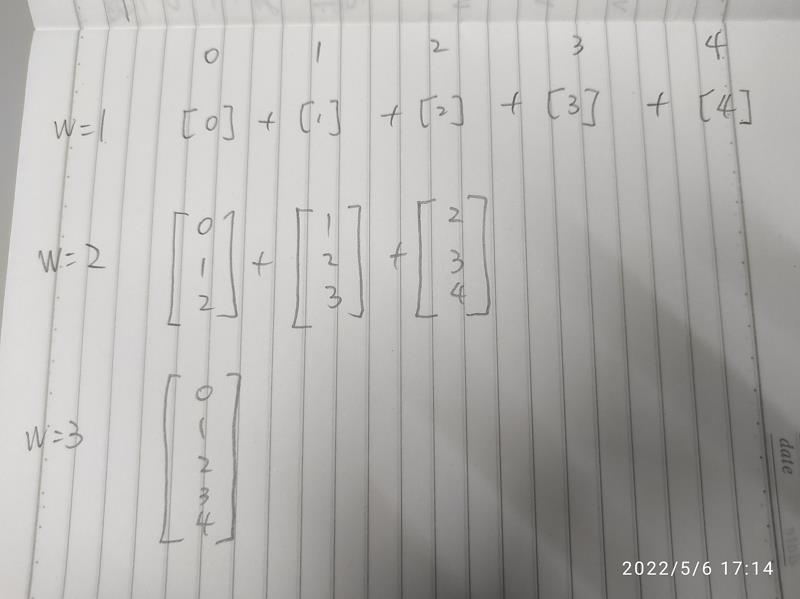 0 1 2 3 4
W=1 [0] + [1] + [2] + [3] + [4]
W=2 [0 1 2] + [1 2 3] + [2 3 4]
W=3 [0 1 2 3 4]
date
2022/5/6 17:14